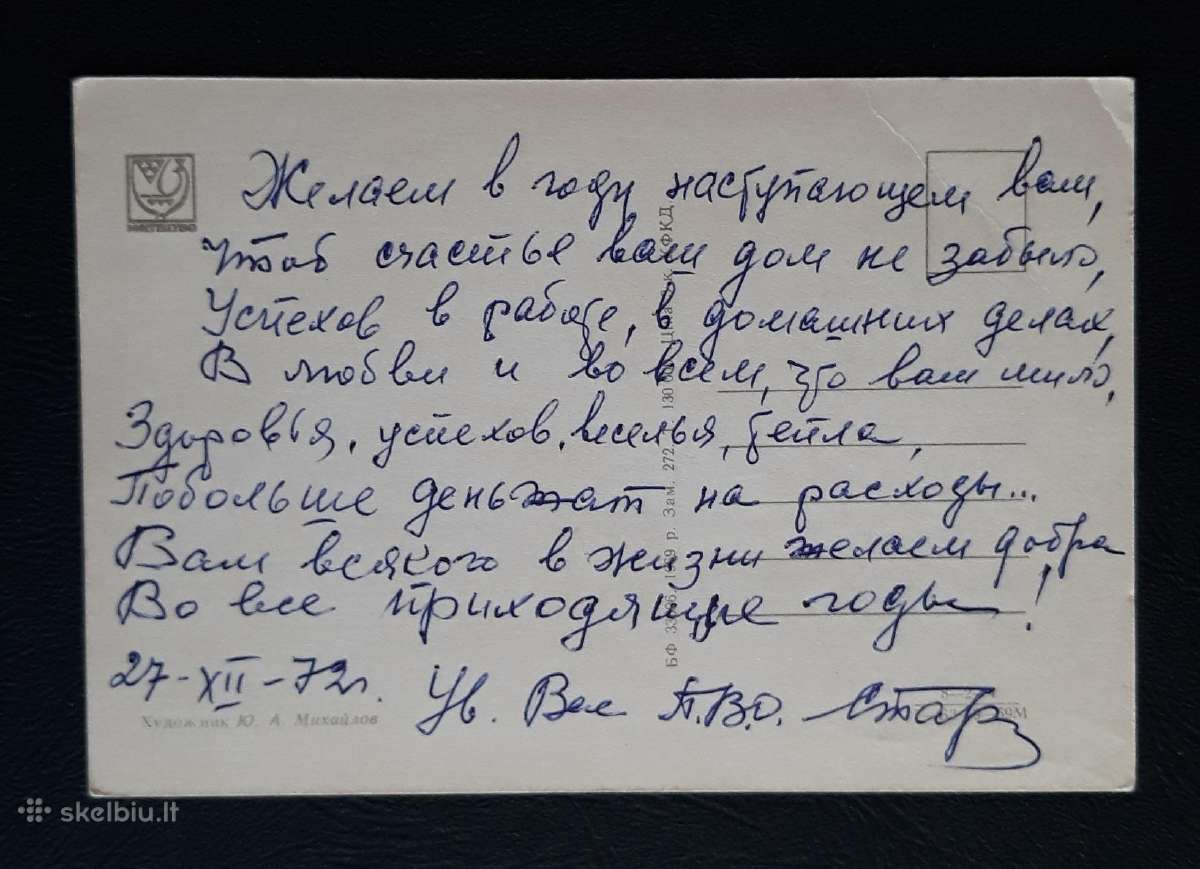 Желаем в году наступающем вам,
Чтоб счастье ваш дом не забыло,
Успехов в работе, в домашних делах,
В любви и во всем, что вам мило,
Здоровья, успехов, веселья, тепла,
Побольше деньжат на расходы...
Вам всякого в жизни желаем добра
Во все приходящие годы!
27-XII-72г. Ув. Вас П.В.О. Стар
Художник Ю. А. Михайлов
МИСТЕЦТВО
БФ р. Зам. 272 130
skelbiu.lt